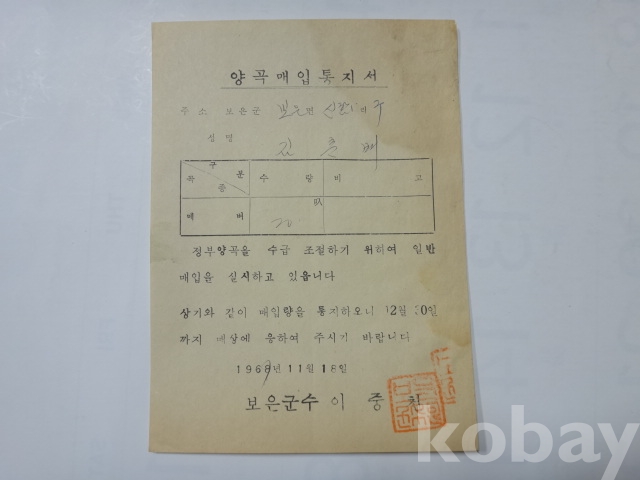 양곡매입통지서
주소 보은군 보은면
성명 김
구분
곡종
수량
비고
벼
叺
정부양곡을 수급 조절하기 위하여 일반
매입을 실시하고 있읍니다
상기와 같이 매입량을 통지하오니 12월 30일
까지 매상에 응하여 주시기 바랍니다
1969년 11월 18일
보은군수 이 중
kobay